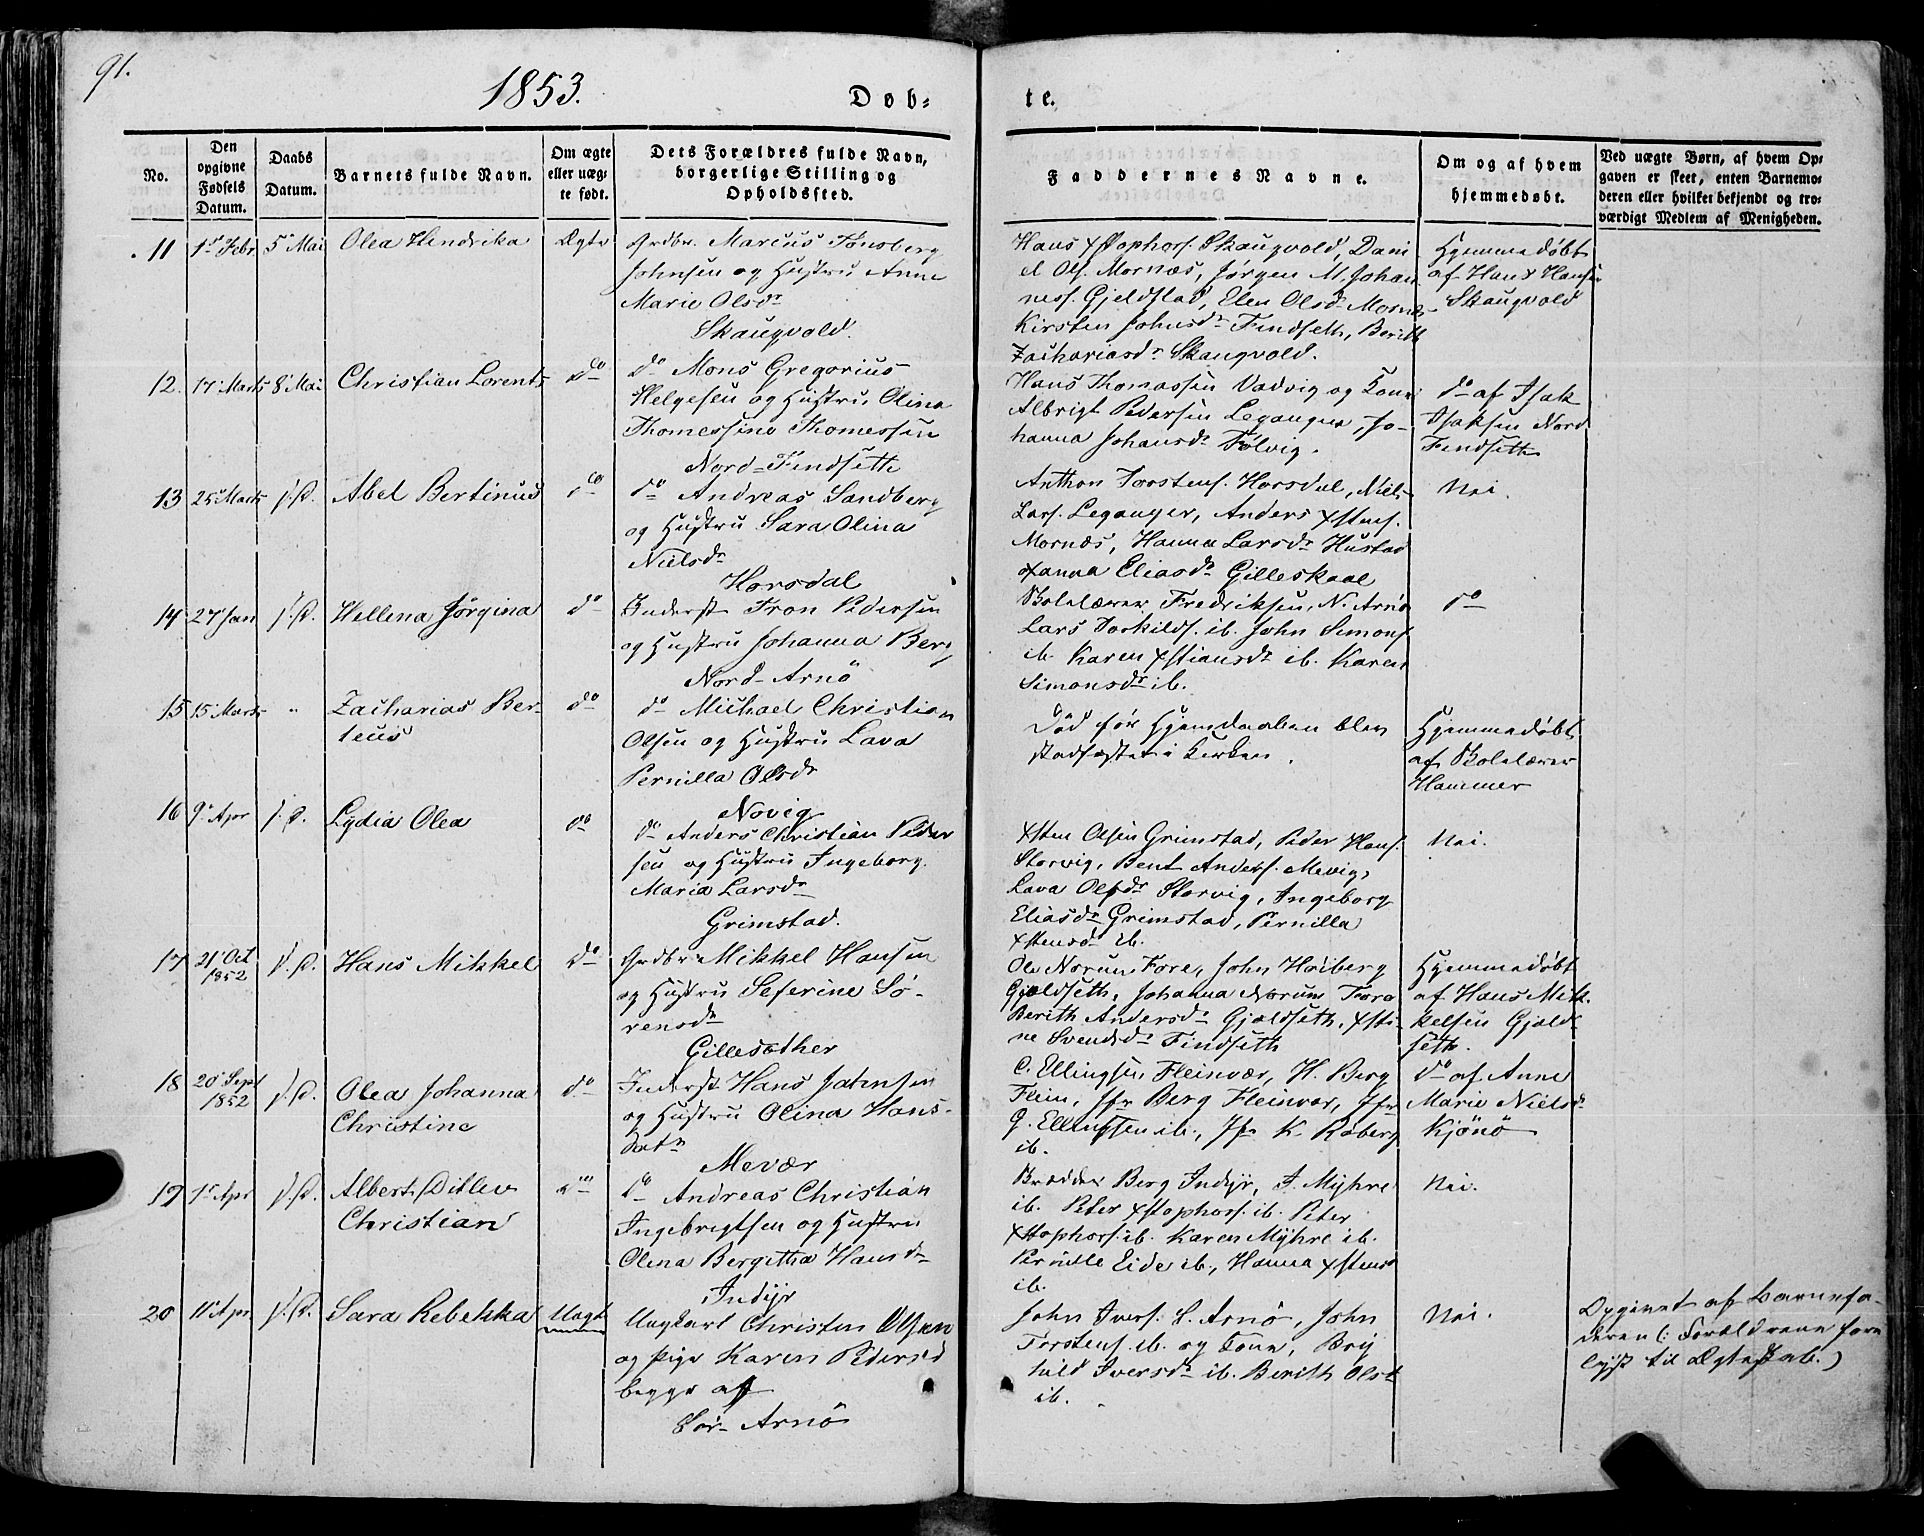 91.
1853.
Døb=
te.
No.
Den
opgivne
Fødsels
Datum.
Daabs
Datum.
Barnets fulde Navn.
Om ægte
eller uæg-
te født.
Dets Forældres fulde Navn,
borgerlige Stilling og
Opholdssted.
Faddernes Navne.
Om og af hvem
hjemmedøbt.
Ved uægte Børn, af hvem Op-
gaven er skeet, enten Barnemo-
deren eller hvilket bekjendt og tro-
værdigt Medlem af Menigheden.
11
1ste Febr.
5te Mai
Olea Hendrika
Ægte
Grdbr. Marcus Tønsberg
Johnsen og Hustru Anne
Marie Olsdr
Skaugvold.
Hans Xstophers. Skaugvold, Dani
el Ols. Mornæs, Jørgen M. Johan
ness. Gjeldstad, Elen Olsdr Mornæs
Kirsten Johnsdr Findseth, Berith
Zachariasdr Skaugvold.
Hjemmedøbt
af Hans Hansen
Skaugvold
12.
17 Marts
8 Mai
Christian Lorents
do
do Mons Gregorius
Helgesen og Hustru Olina
Thomessine Thomessen
Nord-Findseth
Hans Thomassen Vadvig og Kone
Albrigt Pedersen Leganger, Jo-
hanna Johansdr Tølvig.
do af Isak
Isaksen Nord
Findseth
13
25 Marts
s. D.
Abel Bertinus
do
do Andreas Sandberg
og Hustru Sara Olina
Nielsdr
Horsdal
Anthon Torstens. Horsdal, Niels
Lars. Leganger, Anders Xstens.
Mornæs, Hanna Larsdr Hustad
Hanna Eliasdr Gilleskaal
Nei.
14
27 Jan
s. D.
Hellena Jørgina
do
Inderst Tron Pedersen
og Hustru Johanna Berg
Nord-Arnö
Skolelærer Fredriksen, N. Arnö
Lars Torkilds. ib. John Simons.
ib. Karen Xstiansdr ib. Karen
Simonsdr ib.
do
15
15 Marts
"
Zacharias Ber-
teus
do
do Michael Christian
Olsen og Hustru Lava
Pernilla Olsdr
Novig
Død før Hjemdaaben blev
stadfæstet i Kirken.
Hjemmedøbt
af Skolelærer
Hammer
16
9. Apr
s. D.
Lydia Olea
do
do Anders Christian Peder
sen og Hustru Ingeborg
Maria Larsdr
Grimstad.
Xsten Olsen Grimstad, Peder Hans.
Storvig, Bent Anders. Mevig,
Lava Olsdr Storvig, Ingeborg
Eliasdr Grimstad, Pernilla
Xstensdr ib.
Nei.
17
21 Oct
1852
s. D.
Hans Mikkel
do
Grdbr. Mikkel Hansen
og Hustru Seferine Sö-
rensdr
Gillesæther
Ole Norum Fore, John Høiberg
Gjældseth, Johanna Norum Fore
Berith Andersdr Gjældseth, Xsti-
ne Svendsdr Findseth
Hjemmedøbt
af Hans Mik-
kelsen Gjæld
seth.
18
20 Sept
1852
s. D.
Olea Johanna
Christine
do
Inderst Hans Johnsen
og Hustru Olina Hans-
datr
Mevær
C. Ellingsen Fleinvær, H. Berg
Flein, Jfr Berg Fleinvær, Jfr
G. Ellingsen ib., Jfr K. Roberg
ib.
do af Anne
Marie Nielsdr
Kjönö
19
1ste Apr
s. D.
Albert Ditlev
Christian
do
do Andreas Christian
Ingebrigtsen og Hustru
Olena Bergitha Hansdr
Indyr
Berg Indyr, F. Myhre
ib. Peter Xstophers. ib. Peter
Xstophers. ib. Karen Myhre ib.
Pernille Eide ib., Hanna Xstensd
ib.
Nei.
20
11 Apr
s. D.
Sara Rebekka
Uægt
Ungkarl Christen Olsen
og Pige Karen Pedersd
begge af
Sör-Arnö
John Ivers. S. Arnö, John
Torstens. ib. og Kone, Bry
hild Iversdr ib. Berith Olsd
ib.
Nei.
Opgivet af Barnefa-
deren (: Forældrene fore
lyst til Ægteskab.)